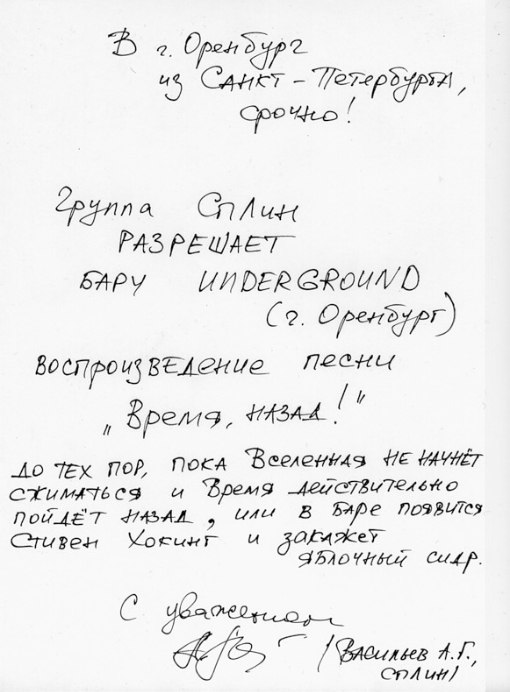 В г. Оренбург
из Санкт-Петербурга,
срочно!
Группа Сплин
РАЗРЕШАЕТ
БАРУ UNDERGROUND
(г. Оренбург)
воспроизведение песни
„Время, назад!"
до тех пор, пока Вселенная не начнёт
сжиматься и Время действительно
пойдёт назад, или в баре появится
Стивен Хокинг и закажет
яблочный сидр.
С уважением
/Васильев А.Г.,
Сплин/